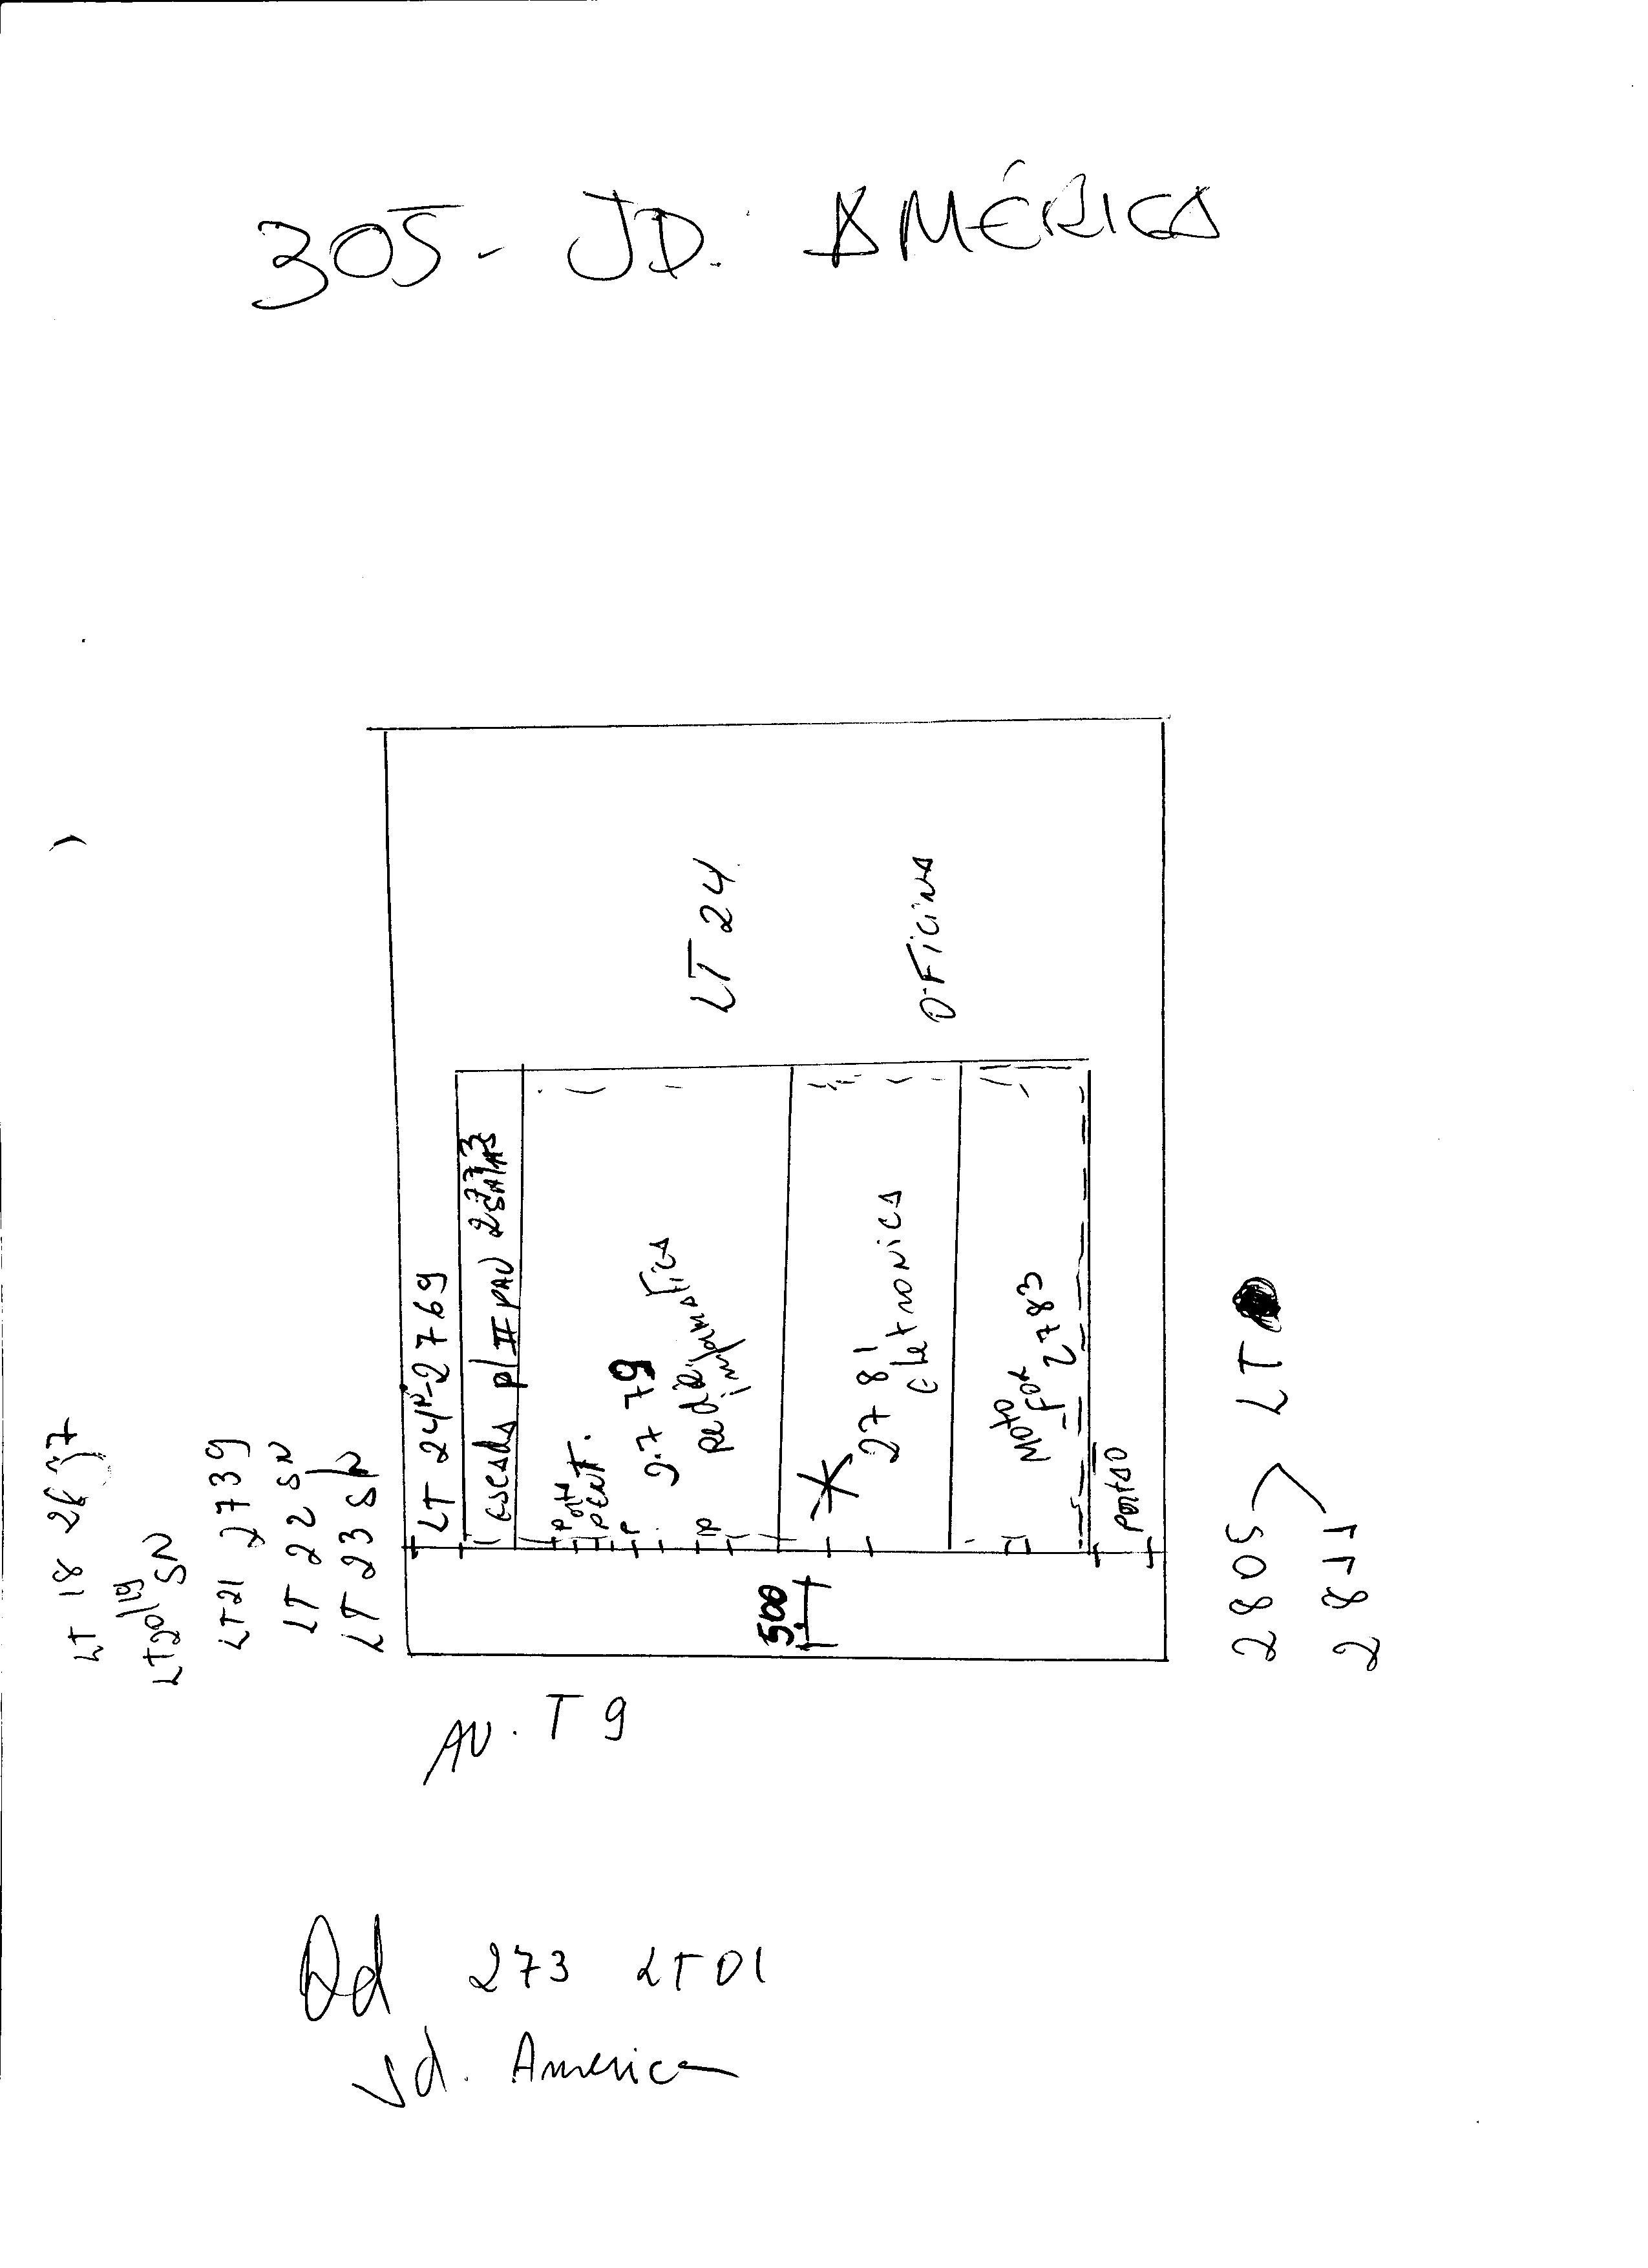 305 - JD. AMÉRICA
LT 18
LT 20/19
SN
LT21 2739
LT 22 SN
LT 23 S/N
LT 24 - 2769
escada p/ II PAV 2773
SALAS
Porta
PENT.
P
2779
informatica
* 2781
eletronica
Moto
Fox
2783
Portão
LT 24
OFICINA
500
2805 > LT
2811
AV. T 9
Qd 273 LT 01
Jd. America